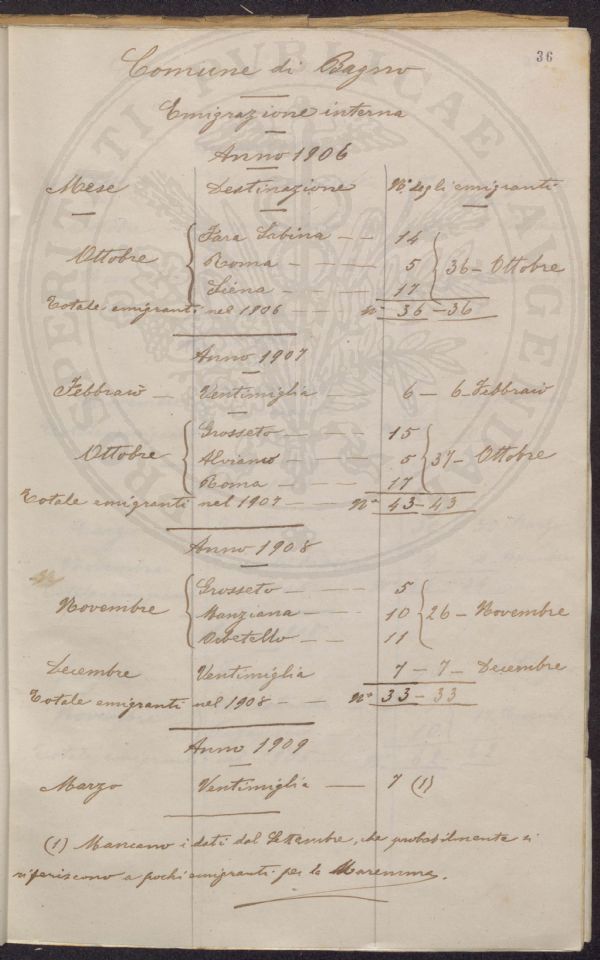 36
PROSPERITATI PVBLICAE AVGENDAE
Comune di Bagno
Emigrazione interna
Anno 1906
Mese Destinazione N.° degli emigranti
Ottobre { Fara Sabina — — 14
Roma — — — — 5 } 36 — Ottobre
Siena — — — — 17
Totale emigranti nel 1906 — — — N° 36 — 36
Anno 1907
Febbraio — Ventimiglia — — 6 — 6 — Febbraio
Ottobre { Grosseto — — — — 15
Alviano — — — — 5 } 37 — Ottobre
Roma — — — — 17
Totale emigranti nel 1907 — — — N° 43 — 43
Anno 1908
Novembre { Grosseto — — — 5
Manziana — — — 10 } 26 — Novembre
Orbetello — — 11
Decembre Ventimiglia 7 — 7 — Decembre
Totale emigranti nel 1908 — — N° 33 — 33
Anno 1909
Marzo Ventimiglia — — 7 (1)
(1) Mancano i dati dal Settembre, che probabilmente si
riferiscono a pochi emigranti per la Maremma.